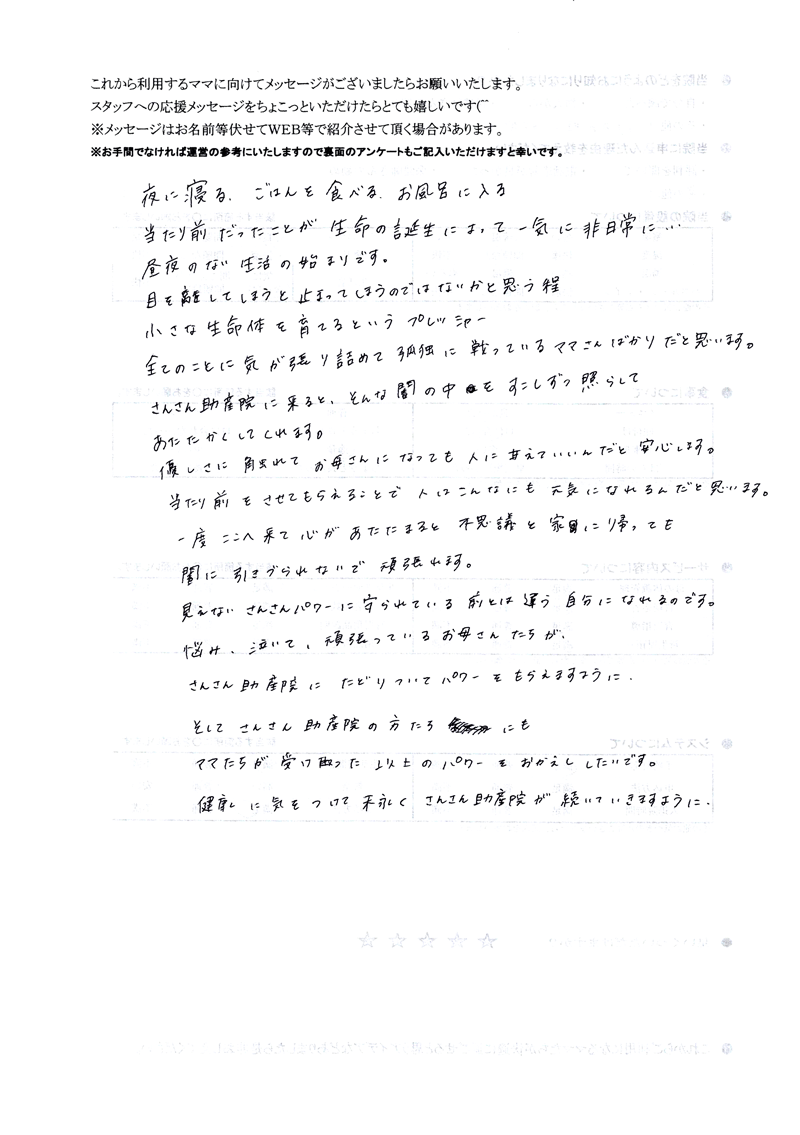 これから利用するママに向けてメッセージがございましたらお願いいたします。
スタッフへの応援メッセージをちょこっといただけたらとても嬉しいです(^^
※メッセージはお名前等伏せてWEB等で紹介させて頂く場合があります。
※お手間でなければ運営の参考にいたしますので裏面のアンケートもご記入いただけますと幸いです。
夜に寝る、ごはんを食べる、お風呂に入る
当たり前だったことが生命の誕生によって一気に非日常に…
昼夜のない生活の始まりです。
目を離してしまうと止まってしまうのではないかと思う程
小さな生命体を育てるというプレッシャー
全てのことに気が張り詰めて孤独に戦っているママさんばかりだと思います。
さんさん助産院に来ると、そんな闇の中をすこしずつ照らして
あたたかくしてくれます。
優しさに触れて お母さんになっても人に甘えていいんだと安心します。
当たり前をさせてもらえることで人はこんなにも元気になれるんだと思います。
一度ここへ来て心があたたまると不思議と家に帰っても
闇に引きづられないで頑張れます。
見えないさんさんパワーに守られている前とは違う自分になれるのです。
悩み、泣いて、頑張っているお母さんたちが、
さんさん助産院にたどりついてパワーをもらえますように、
そしてさんさん助産院の方たちにも
ママたちが受け取った以上のパワーをおかえししたいです。
健康に気をつけて末永くさんさん助産院が続いていきますように、